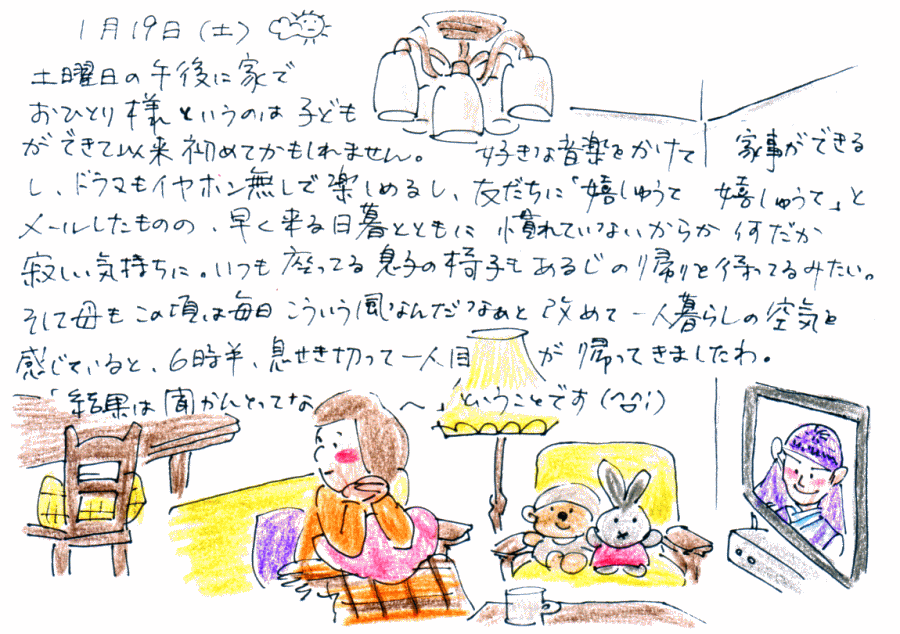 1月19日(土)
土曜日の午後に家で
おひとり様というのは子ども
ができて以来初めてかもしれません。 好きな音楽をかけて 家事ができる
し、ドラマもイヤホン無しで楽しめるし、友だちに「嬉しゅうて 嬉しゅうて」と
メールしたものの、早く来る日暮とともに 慣れていないからか 何だか
寂しい気持ちに。いつも座ってる息子の椅子もあるじの帰りを待ってるみたい。
そして母もこの頃は毎日こういう風なんだなぁと 改めて一人暮らしの空気を
感じていると、6時半、息せき切って一人目 が帰ってきましたわ。
「結果は聞かんとってな 〜」ということです(^^;)